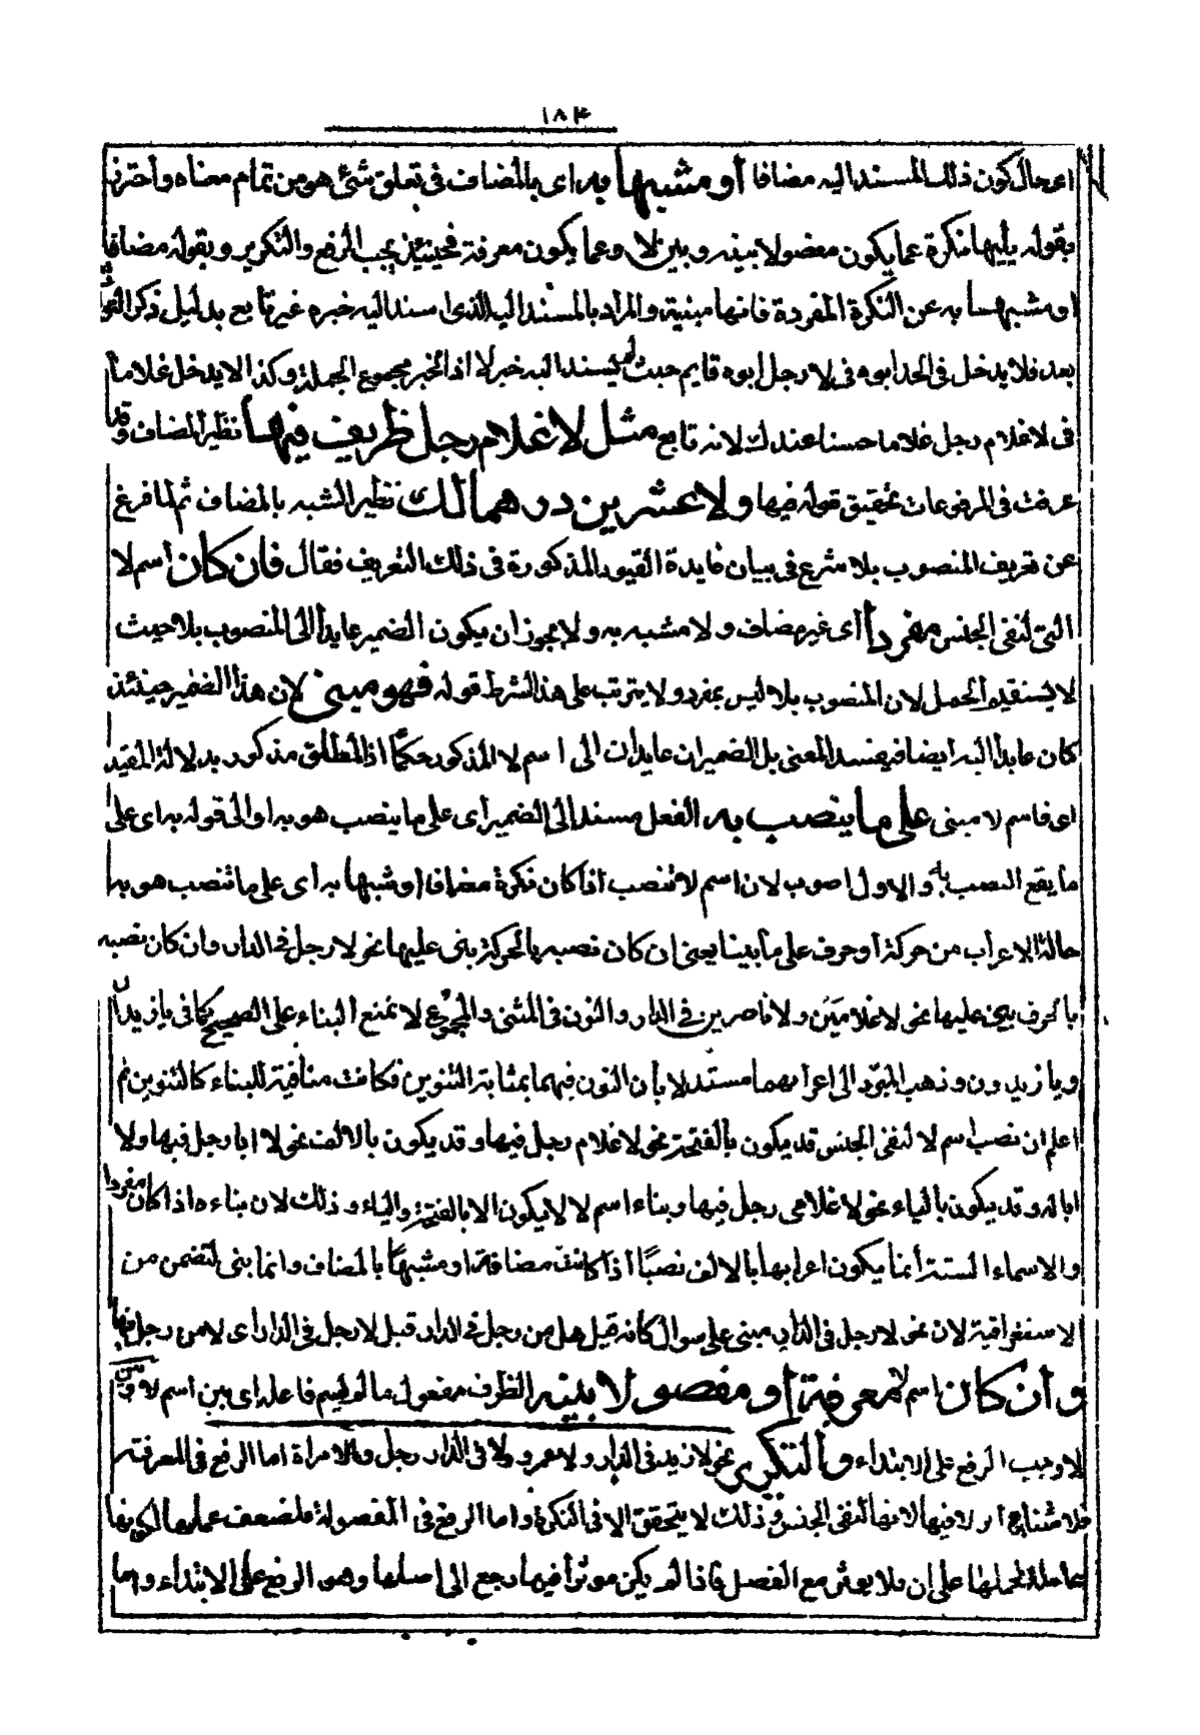 ١٨٣
اى حال كون ذلك المسند اليه مضافا أو مشبها به اى بالمضاف فى تعلق شئ هو من تمام معناه واحترز
بقوله يليها نكرة عما يكون مفصولا بينه وبين لا وعما يكون معرفة فحينئذ يجب الرفع والتكرير وبقوله مضافا
او مشبها به عن النكرة المفردة فانها مبنية والمراد بالمسند اليه الذى اسند اليه خبره غير تابع بدليل ذكر التوابع
بعد فلا يدخل فى الحد ابوه فى لا رجل ابوه قايم حيث لم يسند اليه خبر لا اذ الخبر مجموع الجملة وكذا لا يدخل غلاما
فى لا غلام رجل غلاما حسنا عندك لانه تابع مثل لا غلام رجل ظريف فيها نظير المضاف وقد
عرفت فى المرفوعات تحقيق قوله فيها ولا عشرين درهما لك نظير الشبه بالمضاف ثم لما فرغ
عن تعريف المنصوب بلا شرع فى بيان فايدة القيود المذكورة فى ذلك التعريف فقال فان كان اسم لا
التى لنفى الجنس مفردا أى غير مضاف ولا مشبه به ولا يجوز ان يكون الضمير عايدا الى المنصوب بلا حيث
لا يستقيم الحمل لان المنصوب بلا ليس بمفرد ولا يترتب على هذا الشرط قوله فهو مبنى لان هذا الضمير حينئذ
كان عايدا اليه ايضا فيفسد المعنى بل الضميران عايدان الى اسم لا المذكور حكما اذ المطلق مذكور بدلالة المقيد
اى فاسم لا مبنى على ما ينصب به الفعل مسند الى الضمير أى على ما ينصب هو به او الى قوله به اى على
ما يقع النصب به والاول اصوب لان اسم لا تنصب اذا كان نكرة مضافا او شبها به اى على ما تنصب هو به
حالة الاعراب من حركة أو حرف على ما بينا يعنى ان كان نصبه بالحركة بنى عليها نحو لا رجل فى الدار وان كان نصبه
بالحرف بنى عليها نحو لا غلامين ولا ناصرين فى الدار والنون فى المثنى والمجموع لا تمنع البناء على الصحيح كما فى يا زيدان
ويا زيدون وذهب المبرد الى اعرابهما مستدلا بأن النون فيهما بمثابة التنوين فكانت منافية للبناء كالتنوين ثم
اعلم ان نصب اسم لا لنفى الجنس قد يكون بالفتحة نحو لا غلام رجل فيها وقد يكون بالالف نحو لا ابا رجل فيها ولا
ابا له وقد يكون بالياء نحو لا غلامى رجل فيها وبناء اسم لا لا يكون الا بالفتحة والياء وذلك لان بناءه اذا كان مفردا
والاسماء الستة أنما يكون اعرابها بالالف نصبًا اذا كانت مضافة او مشبها بالمضاف وانما بنى لتضمن من
الاستغراقية لان نحو لا رجل فى الدار مبنى على سوال كانه قيل هل من رجل فى الدار قيل لا رجل فى الدار اى لا من رجل فيها
وأن كان اسم لا معرفة أو مفصولا بينه الظرف مفعول ما لم يسم فاعله اى بين اسم لا وبين
لا وجب الرفع على الابتداء والتكرير نحو لا زيد فى الدار ولا عمرو ولا فى الدار رجل ولا امراة اما الرفع فى المعرفة
فلامتناع اثر لا فيها لانها لنفى الجنس وذلك لا يتحقق الا فى النكرة واما الرفع فى المفصولة فلضعف عملها لكونها
عاملة لحملها على ان فلا يعمل مع الفصل فاذا لم يكن موثرا فيها رجع الى اصلها وهو الرفع على الابتداء واما